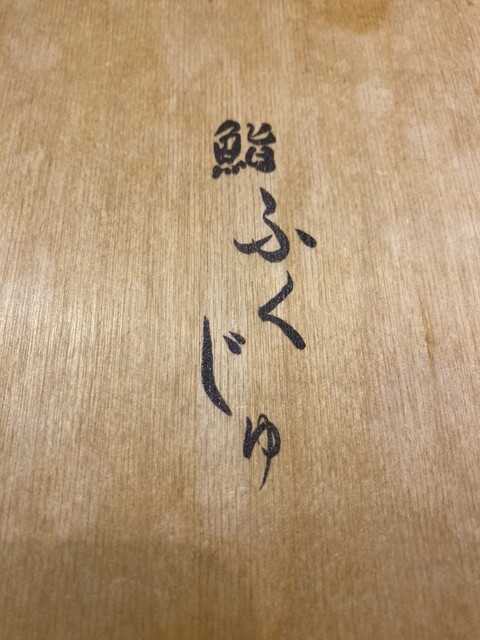 鮨
ふくじゅ